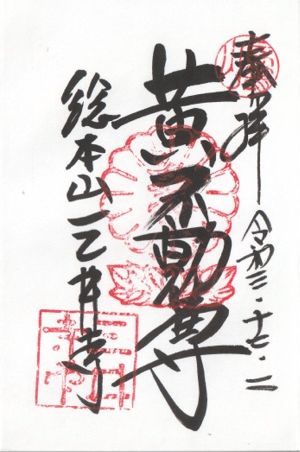 奉拝
令和三・十七・二
黄不動尊
総本山三井寺